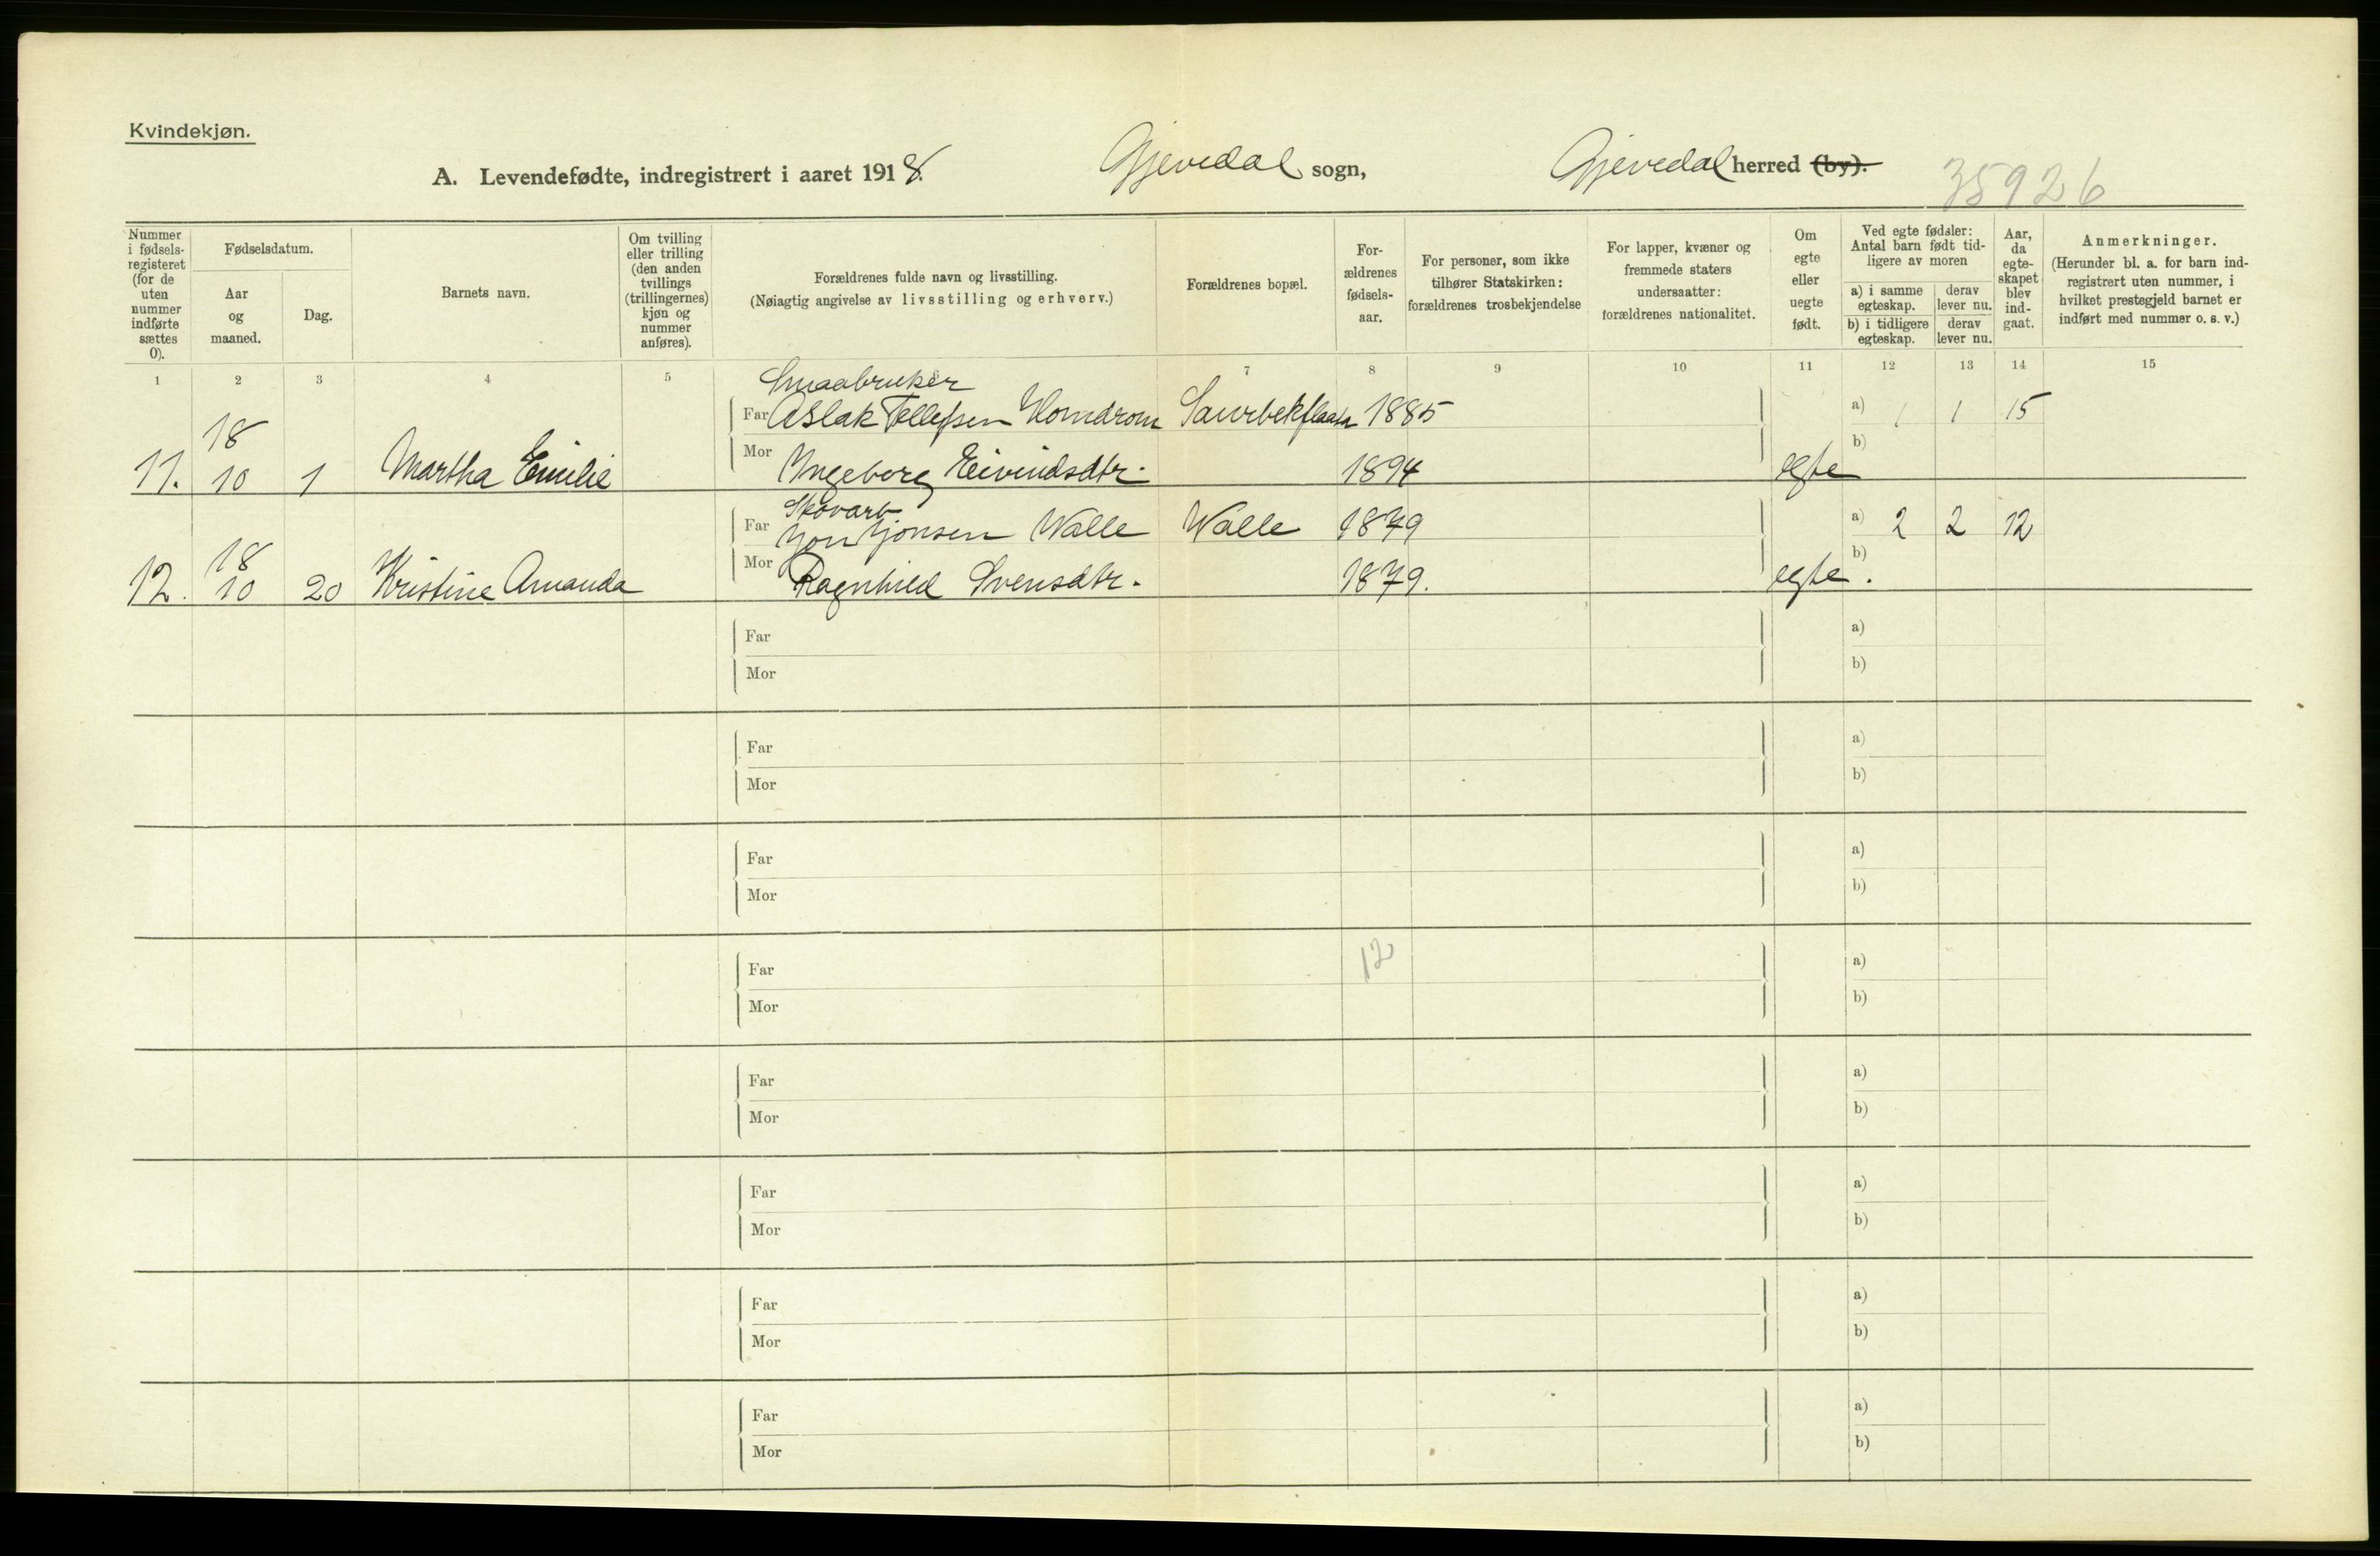 Kvindekjøn.
A. Levendefødte, indregistrert i aaret 1918. Gjevedal sogn, Gjevedal herred (by). 35926
Nummer i fødsels-registeret (for de uten nummer indførte sættes 0).
Fødselsdatum.
Aar og maaned.
Dag.
Barnets navn.
Om tvilling eller trilling (den anden tvillings (trillingernes) kjøn og nummer anføres).
Forældrenes fulde navn og livsstilling.
(Nøiagtig angivelse av livsstilling og erhverv.)
Forældrenes bopæl.
For-ældrenes fødsels-aar.
For personer, som ikke tilhører Statskirken: forældrenes trosbekjendelse
For lapper, kvæner og fremmede staters undersaatter: forældrenes nationalitet.
Om egte eller uegte født.
Ved egte fødsler: Antal barn født tid-ligere av moren
a) i samme egteskap.
derav lever nu.
b) i tidligere egteskap.
derav lever nu.
Aar, da egte-skapet blev ind-gaat.
Anmerkninger.
(Herunder bl. a. for barn ind-registrert uten nummer, i hvilket prestegjeld barnet er indført med nummer o. s. v.)
1 2 3 4 5 7 8 9 10 11 12 13 14 15
Smaabruker
Far Aslak Tellefsen Homdrom 1885 a) 1 1 15
18
Mor b)
11. 10 1 Martha Emilie Yngeborg Eivindsdtr. 1894 egte
Skovarb
Far Jon Jonsen Walle Walle 1879 a) 2 2 12
18
Mor b)
12. 10 20 Kristine Amanda Ragnhild Svensdtr. 1879. egte.
Far a)
Mor b)
Far a)
Mor b)
Far a)
Mor b)
Far 12 a)
Mor b)
Far a)
Mor b)
Far a)
Mor b)
Far a)
Mor b)
Far a)
Mor b)